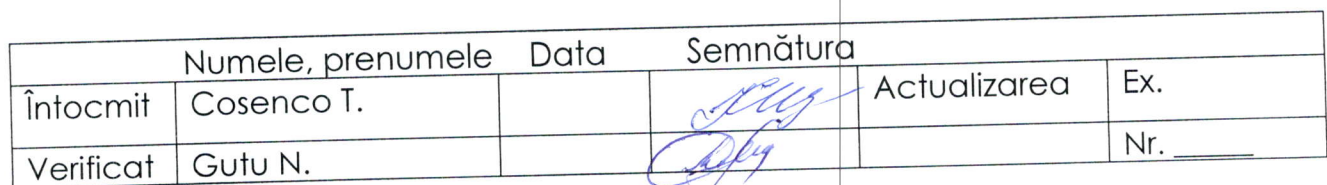 Numele, prenumele Data Semnătura
Întocmit Cosenco T. Actualizarea Ex.
Verificat Gutu N. Nr. _____